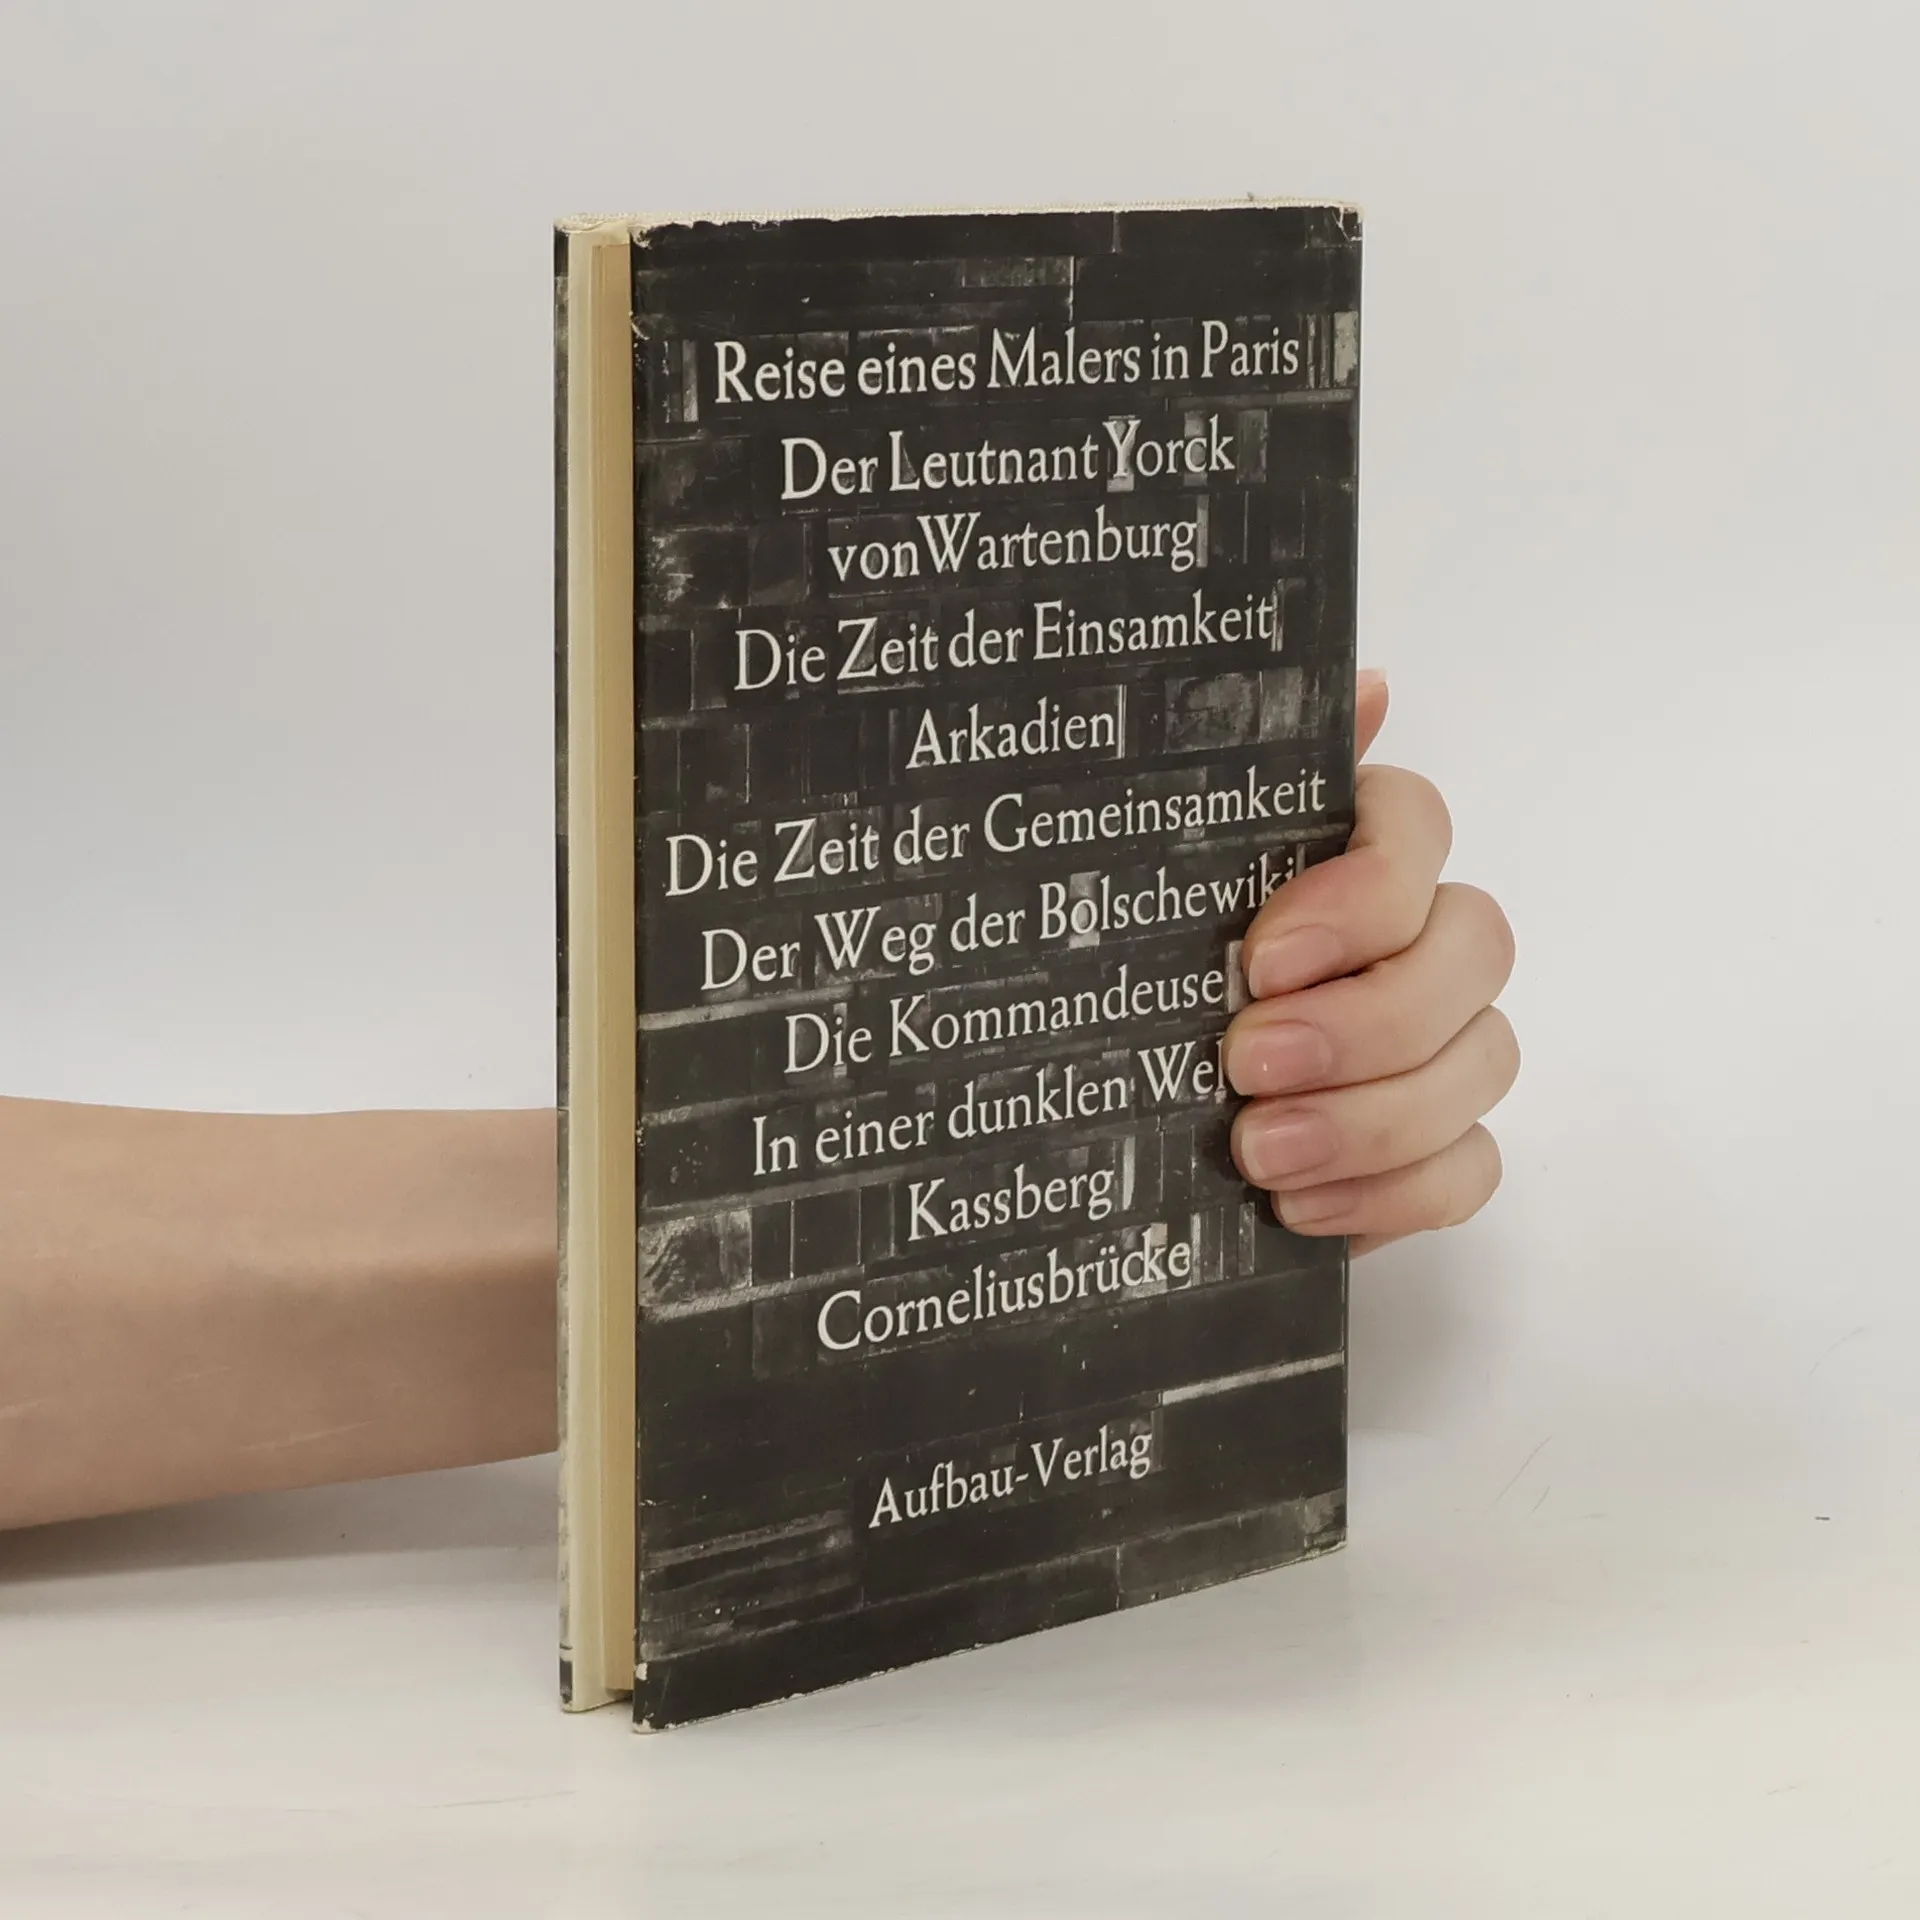 Reise eines Malers in Paris
Der Leutnant Yorck
von Wartenburg
Die Zeit der Einsamkeit
Arkadien
Die Zeit der Gemeinsamkeit
Der Weg der Bolschewiki
Die Kommandeuse
In einer dunklen
Kassberg
Corneliusbrücke
Aufbau-Verlag